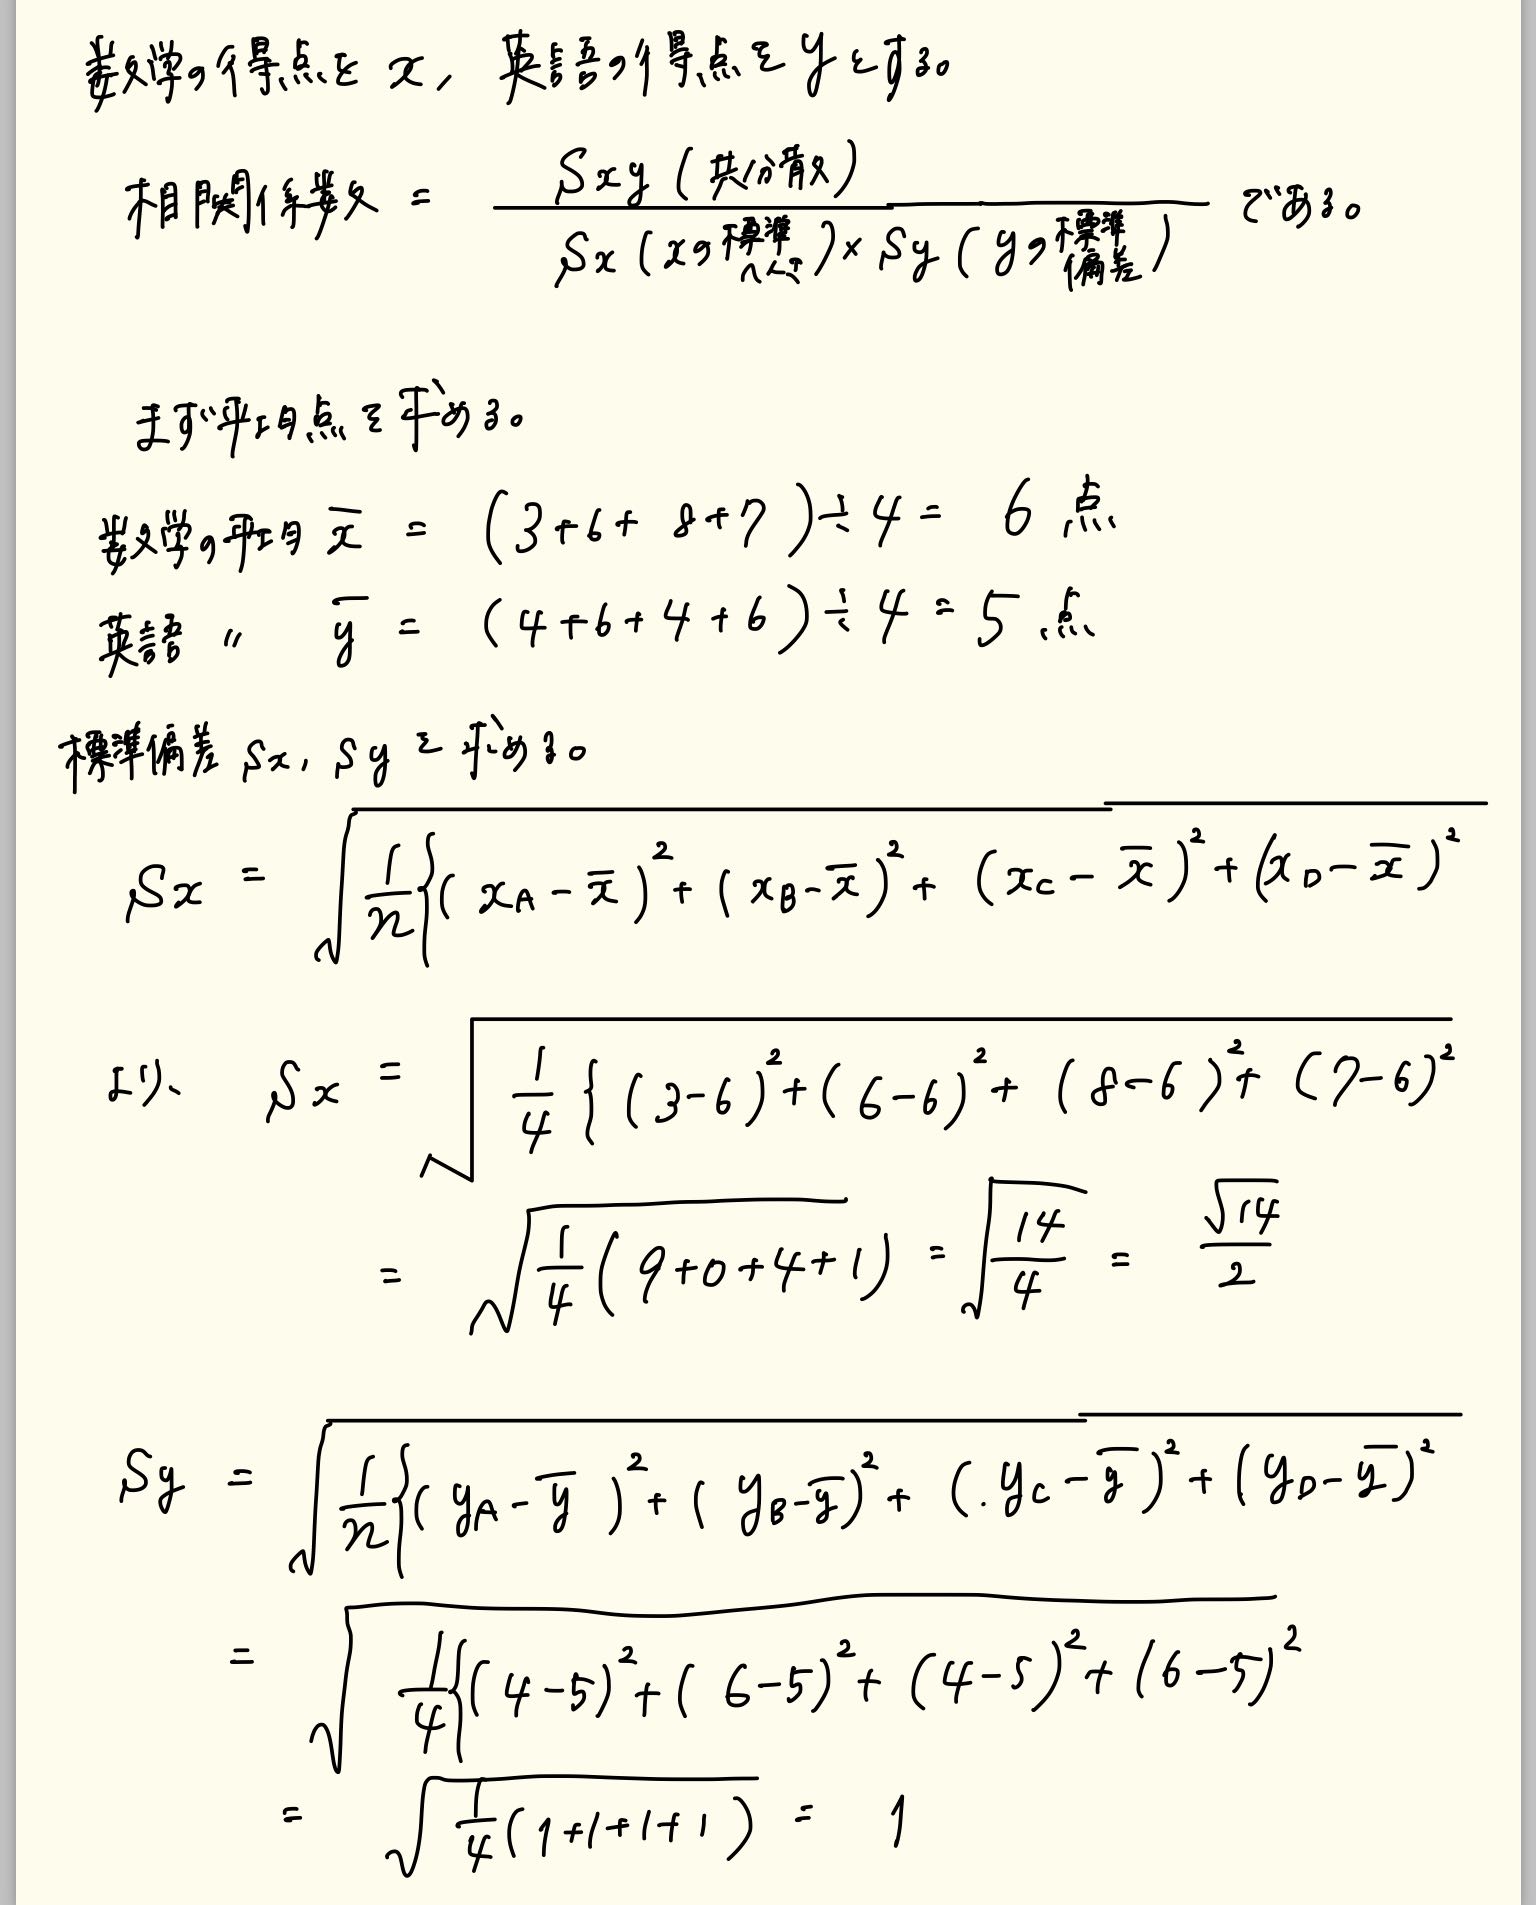 数学の得点を x, 英語の得点を y とする。
相関係数 = Sxy (共分散) / Sx (xの標準へんさ) × Sy (yの標準偏差) である。
まず平均点を求める。
数学の平均 x̄ = (3+6+8+7)÷4 = 6点
英語 〃 ȳ = (4+6+4+6)÷4 = 5点
標準偏差 Sx, Sy を求める。
Sx = √1/n{(xA-x̄)²+(xB-x̄)²+(xC-x̄)²+(xD-x̄)²
より、 Sx = √1/4{(3-6)²+(6-6)²+(8-6)²+(7-6)²
= √1/4(9+0+4+1) = √14/4 = √14/2
Sy = √1/n{(yA-ȳ)²+(yB-ȳ)²+(yC-ȳ)²+(yD-ȳ)²
= √1/4{(4-5)²+(6-5)²+(4-5)²+(6-5)²
= √1/4(1+1+1+1) = 1